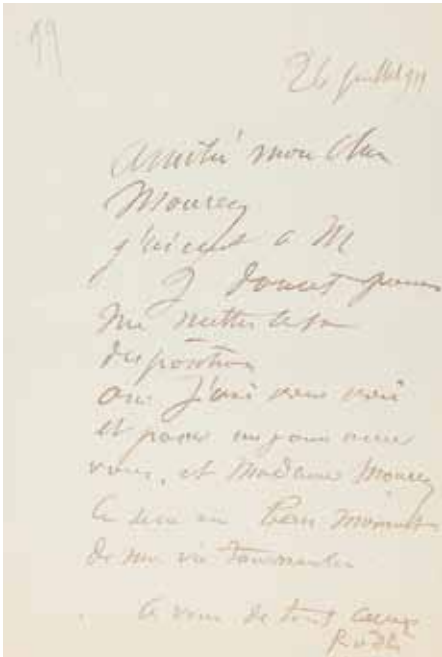 99
26 juillet 1911
Amitié mon cher
Mourey
j'écris à M
J. Doucet pour
me mettre à sa
disposition
oui J'irai vous voir
et passer un jour avec
vous, et Madame Mourey
Ce sera un bon moment
de ma vie tourmentée
A vous de tout coeur
Rodin